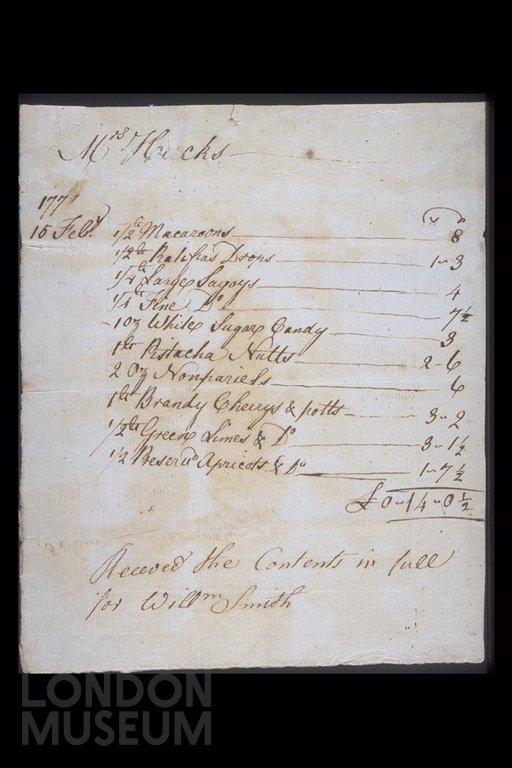 Mrs Hucks
177
15 Feby
s d
1/2 lb Macaroons 8
1/2 lb Ratifias Drops 1-3
1/4 lb Large Savoys 4
1/4 lb Fine Do 7 1/2
1 oz White Sugar Candy 3
1 lb Pistacha Nutts 2-6
2 oz Nonpariels 6
1 lb Brandy Cherrys & potts 3-2
1/2 lb Green Limes & Do 3-1 1/2
1/2 Preservd Apricots & Do 1-7 1/2
£0-14-0 1/2
Receved the Contents in full
for Willm Smith
LONDON
MUSEUM